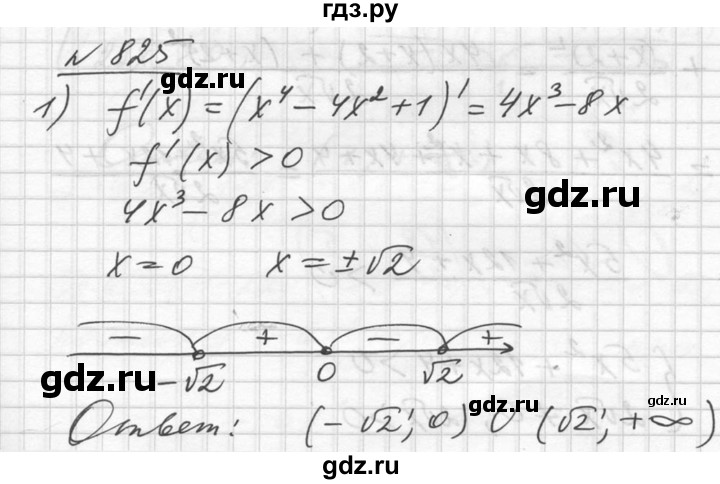 гдз.ру
№ 825
gdz.ru
1) f'(x) = (x⁴ - 4x² + 1)' = 4x³ - 8x
f'(x) > 0
gdz.ru
4x³ - 8x > 0
x = 0 x = ±√2
− + − +
gdz.ru -√2 0 √2 gdz.ru
gdz.ru
Ответ: (-√2; 0) ∪ (√2; +∞)
gdz.ru gdz.ru